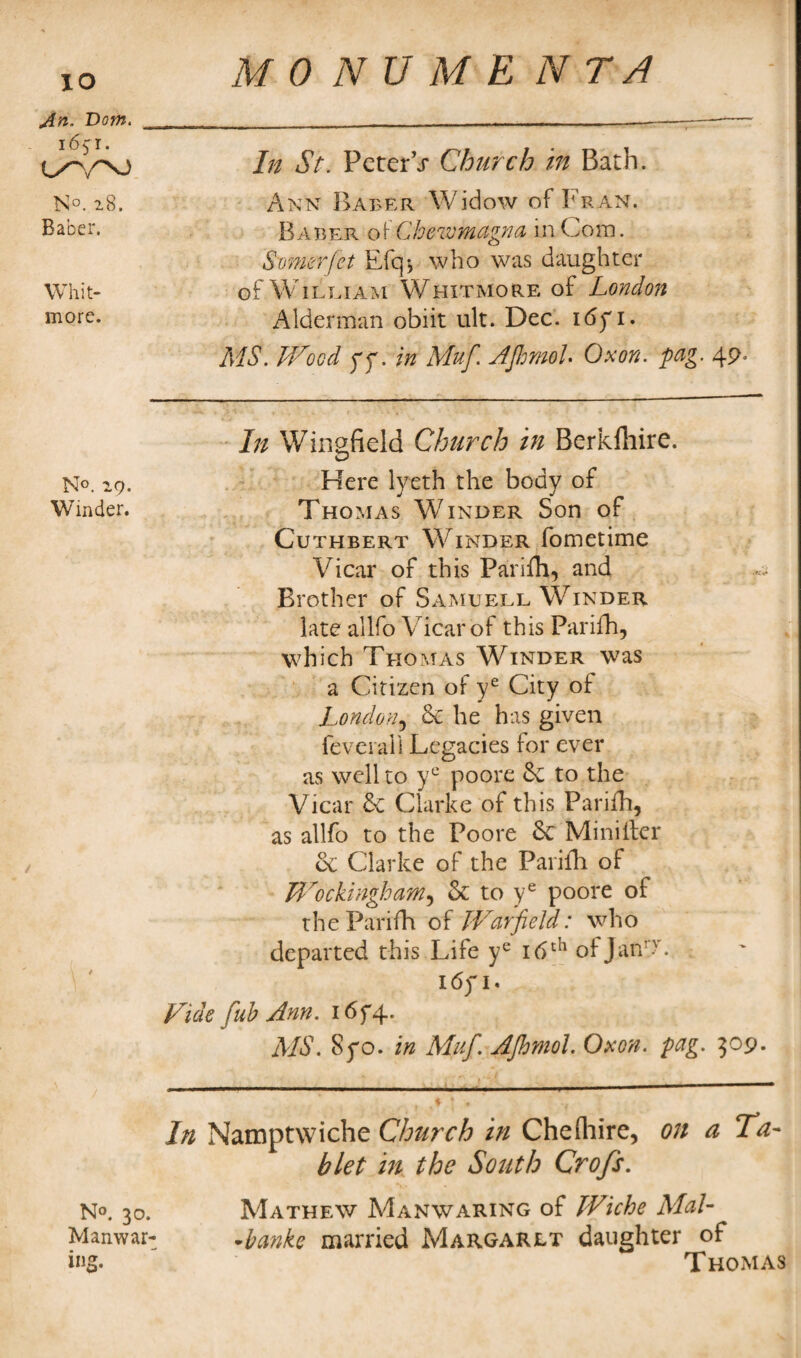 10
MONUMENTA
An. Dom.
1651.
In St. Peter's Church in Bath.
No. 28.
Baber.
Whit-
more.
Ann Baber Widow of Fran.
Baber of Chewmagna in Com.
Somerſet Eſq; who was daughter
of William Whitmore of London
Alderman obiit ult. Dec. 1651.
MS. Wood 55. in Muſ. Aſhmol. Oxon. pag. 49.
In Wingfield Church in Berkſhire.
No. 29.
Winder.
Here lyeth the body of
Thomas Winder Son of
Cuthbert Winder ſometime
Vicar of this Pariſh, and
Brother of Samuell Winder
late allſo Vicar of this Pariſh,
which Thomas Winder was
a Citizen of yᵉ City of
London, & he has given
ſeverall Legacies for ever
as well to yᵉ poore & to the
Vicar & Clarke of this Pariſh,
as allſo to the Poore & Miniſter
& Clarke of the Pariſh of
Wockingham, & to yᵉ poore of
the Pariſh of Warfield: who
departed this Life yᵉ 16ᵗʰ of Janʳʸ.
1651.
Vide ſub Ann. 1654.
MS. 850. in Muſ. Aſhmol. Oxon. pag. 309.
In Namptwiche Church in Cheſhire, on a Ta-
blet in the South Croſs.
No. 30.
Manwar-
ing.
Mathew Manwaring of Wiche Mal-
-banke married Margaret daughter of
Thomas